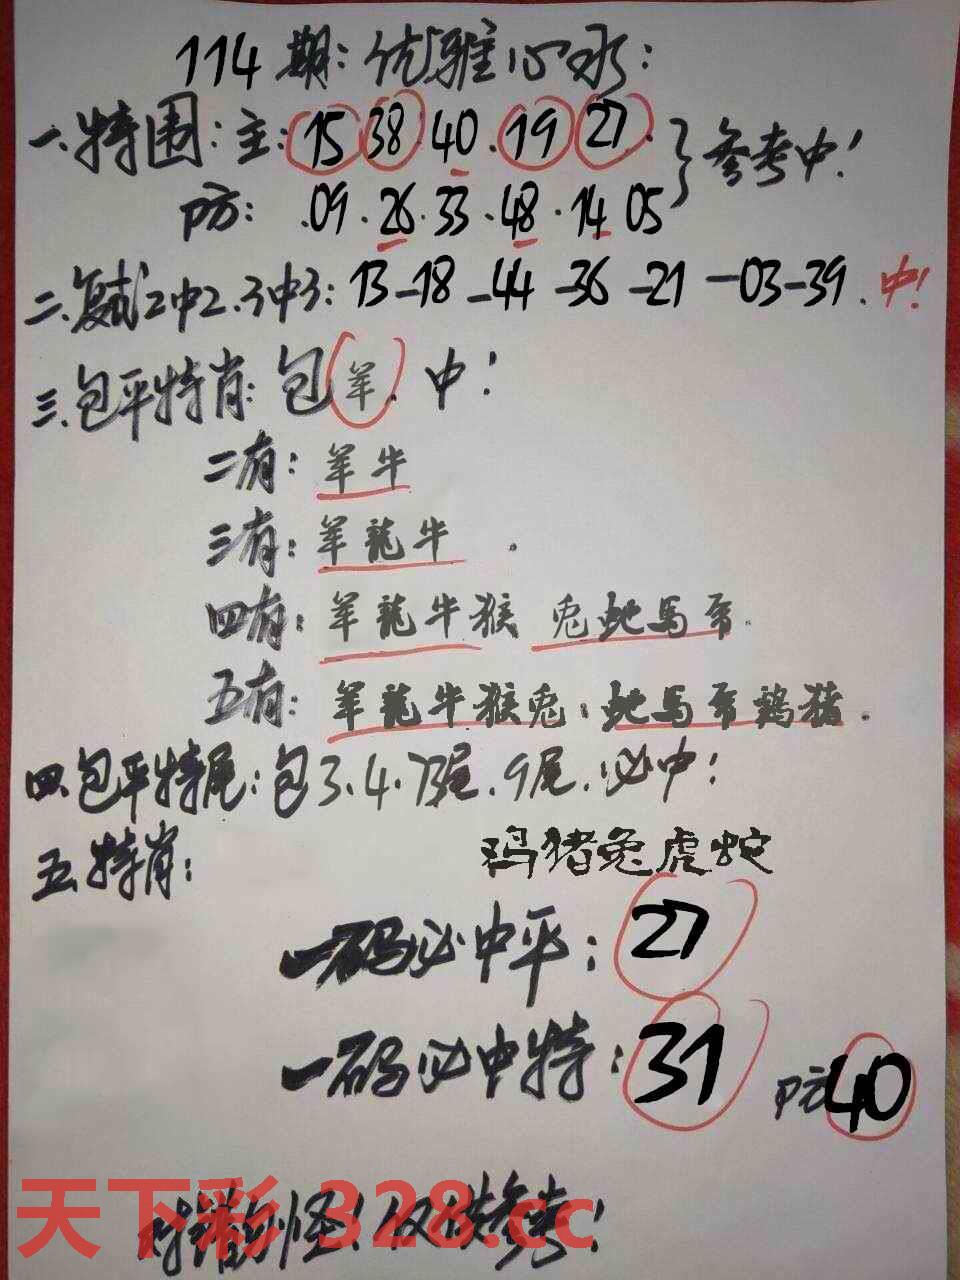 114期:优雅心水:
一.特围:主:15 38 40.19 27. }参考中!
防: .09.26.33.48.14 05
二.复试2中2.3中3:13-18-44-36-21-03-39.中!
三.包平特肖:包羊.中!
二有:羊牛
三有:羊龍牛.
四有:羊龍牛猴 兔蛇馬
五有:羊龍牛猴兔.蛇馬 鷄猪.
四.包平特尾:包3.4.7尾.9尾.必中!
五.特肖: 猪兔虎蛇
一码必中平:27
一码必中特:31 防40
天下彩 328.cc
错 怪!仅供参考!